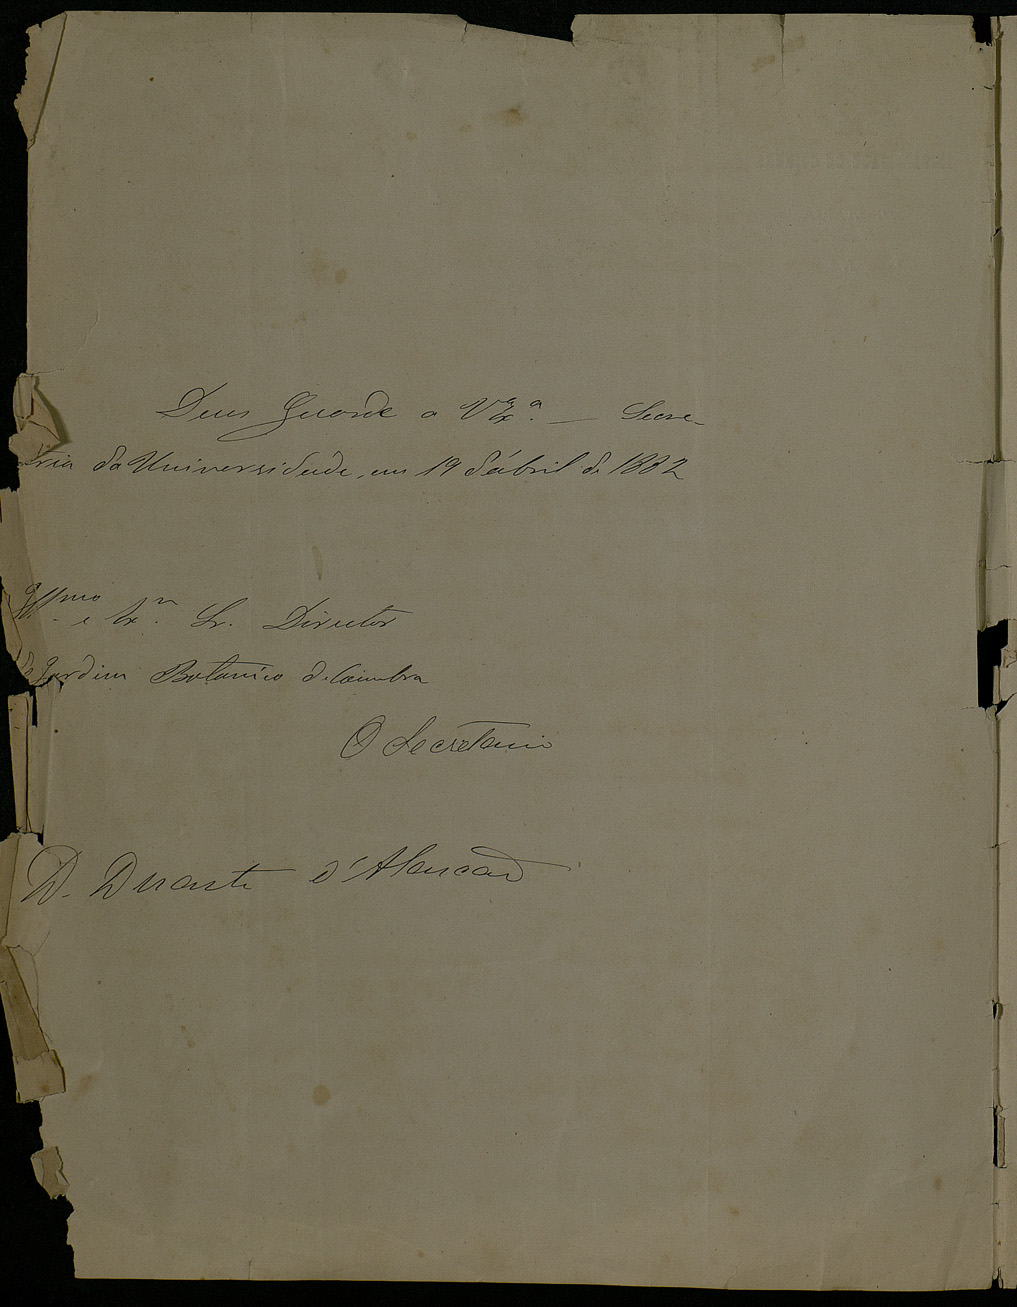 Deus Guarde a V. Exª. — Secre-
tria da Universidade, em 19 d'ábril de 1882
Illmo. e Exm. Sr. Director
do Jardim Botanico de Coimbra
O Secretario
D. Duarte d'Alarcão